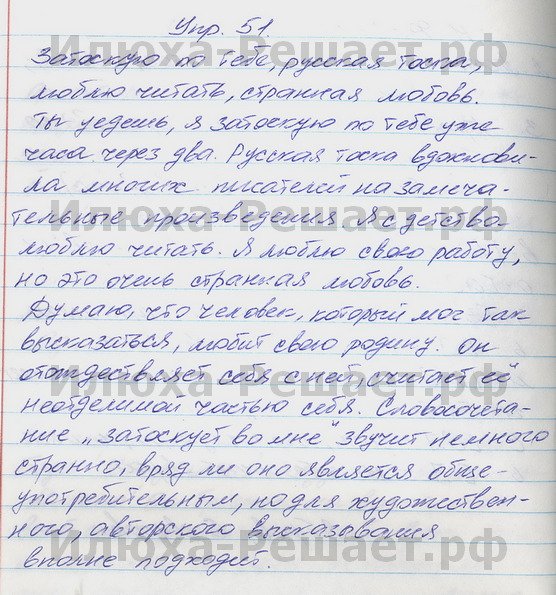 Упр. 51.
Затоскую по тебе, русская тоска,
люблю читать, странная любовь.
Ты уедешь, я затоскую по тебе уже
часа через два. Русская тоска вдохнови-
ла многих писателей на замеча-
тельные произведения. Я с детства
люблю читать. Я люблю свою работу,
но это очень странная любовь.
Думаю, что человек, который мог так
высказаться, любит свою родину. Он
отождествляет себя с ней, считает её
неотделимой частью себя. Словосочета-
ние „затоскует во мне" звучит немного
странно, вряд ли оно является обще-
употребительным, но для художествен-
ного, авторского высказывания
вполне подходит.
Илюха-Решает.рф
Илюха-Решает.рф
Илюха-Решает.рф
Илюха-Решает.рф